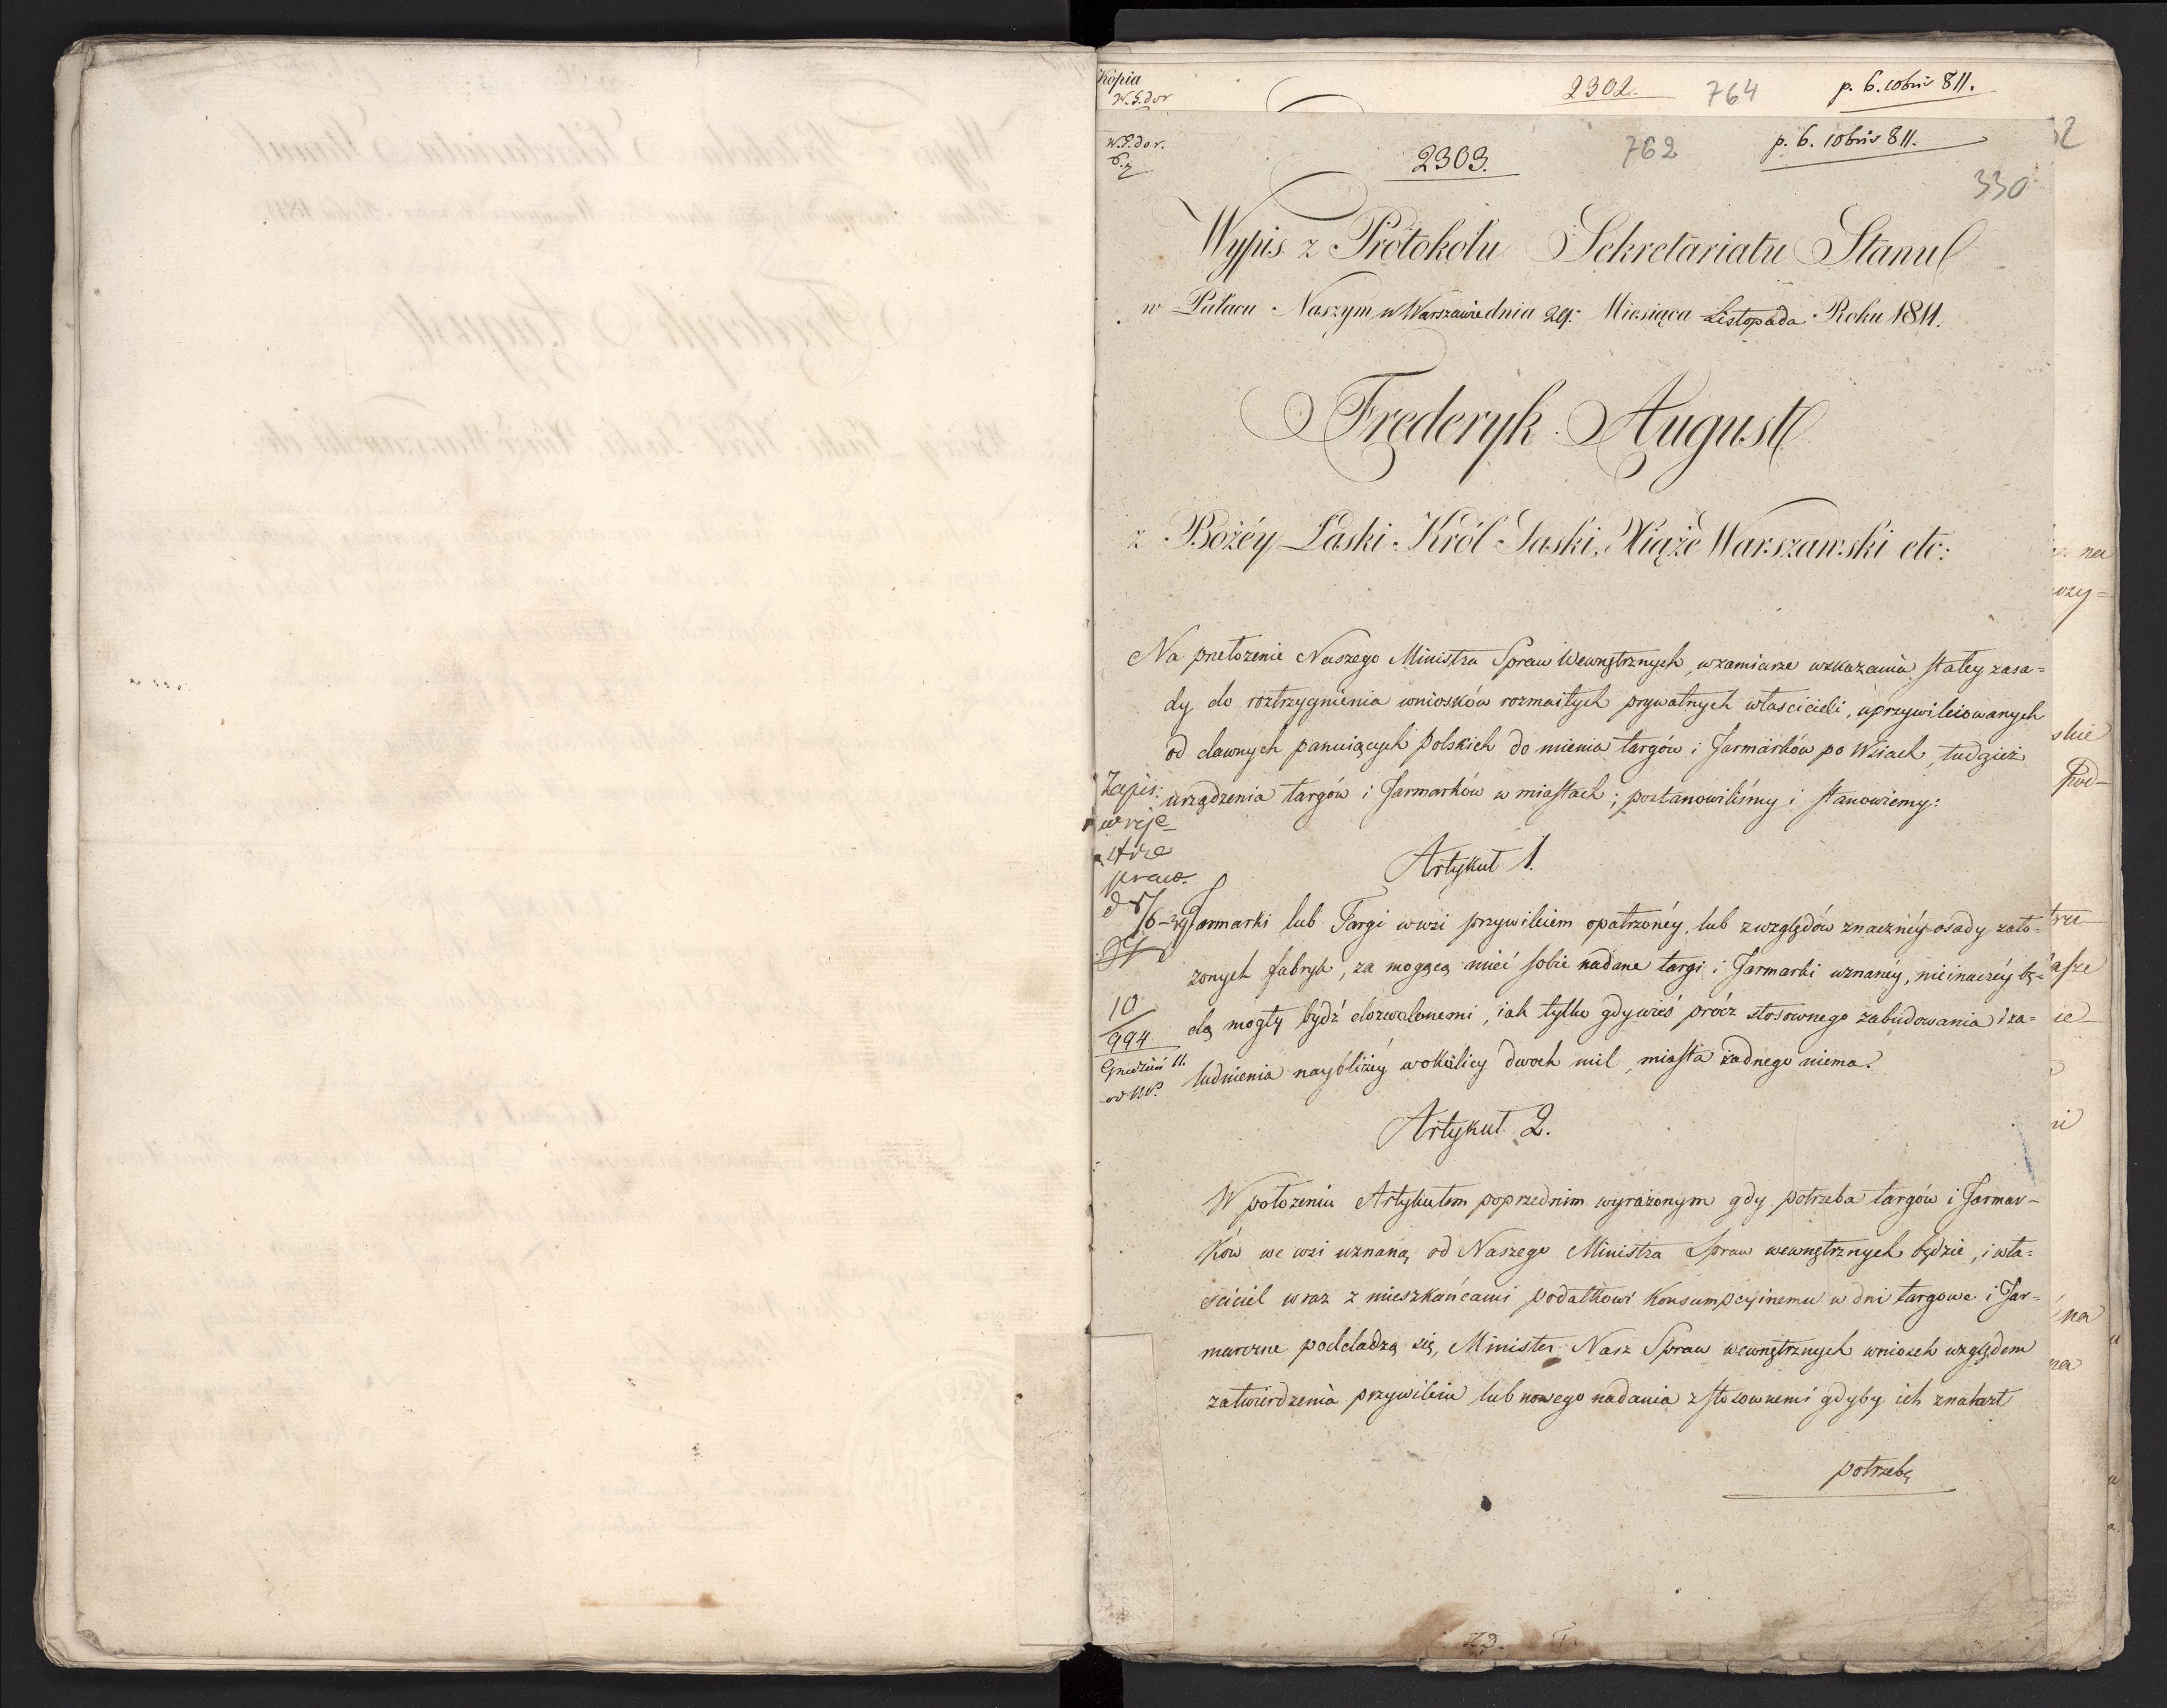 Kopia
2302. 764 p. 6. 10bris 811.
2303. 762 p. 6. 10bris 811.
330
Wypis z Protokołu Sekretariatu Stanu
w Pałacu Naszym w Warszawie dnia 29. Miesiąca Listopada Roku 1811.
Frederyk August
z Bożéy Łaski Król Saski, Xiążę Warszawski etc:
Na przełożenie Naszego Ministra Spraw Wewnętrznych, w zamiarze wskazania stałey zasa=
dy do roztrzygnienia wniosków rozmaitych prywatnych właścicieli, uprzywileiowanych
od dawnych panuiących Polskich do mienia targów i Jarmarków po Wsiach, tudzież
urządzenia targów i Jarmarków w miastach; postanowiliśmy i stanowiemy:
Zapis:
w reje-
strze
praw.
Artykuł 1.
Jarmarki lub Targi w wsi przywileiem opatrzonéy, lub z względów znacznéy osady zało-
żonych fabryk, za mogącą mieć sobie nadane targi i Jarmarki uznanéy, nieinaczéy bę=
dą mogły bydź dozwolonemi, iak tylko gdy wieś prócz stosownego zabudowania i za=
ludnienia naybliżéy w okolicy dwóch mil, miasta żadnego niema.
10
994
Grudzień 11.
Artykuł 2.
W położeniu Artykułem poprzednim wyrażonym gdy potrzeba targów i Jarmar-
ków we wsi uznaną od Naszego Ministra Spraw wewnętrznych będzie, i wła=
ściciel wraz z mieszkańcami podatkowi Konsumpcyinemu w dni targowe i Jar=
marczne poddadzą się, Minister Nasz Spraw wewnętrznych wniosek względem
zatwierdzenia przywileiu lub nowego nadania z stosownemi gdyby ich znalazł
potrzebę